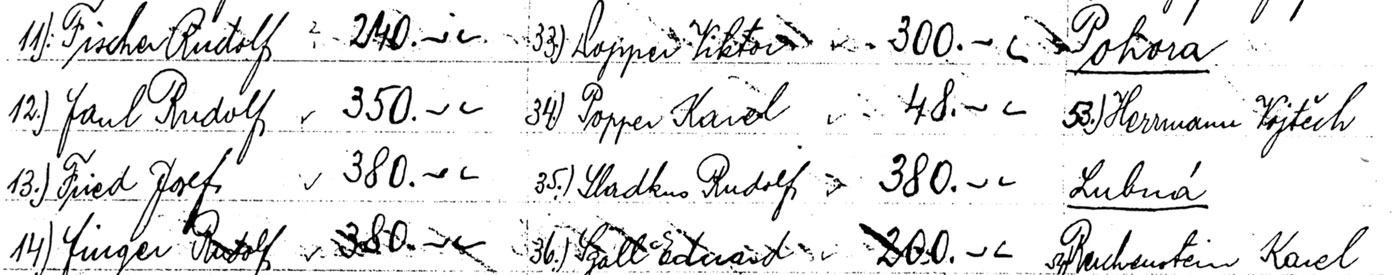 11). Fischer Rudolf 240.-
33.) Popper Viktor 300.-
Pohora
12.) Faul Rudolf 350.-
34.) Popper Karel 48.-
53.) Herrmann Vojtěch
13.) Fried Josef 380.-
35.) Sladkus Rudolf 380.-
Lubná
14.) Finger Rudolf 380.-
36.) Eduard 200.-
Reichenstein Karel